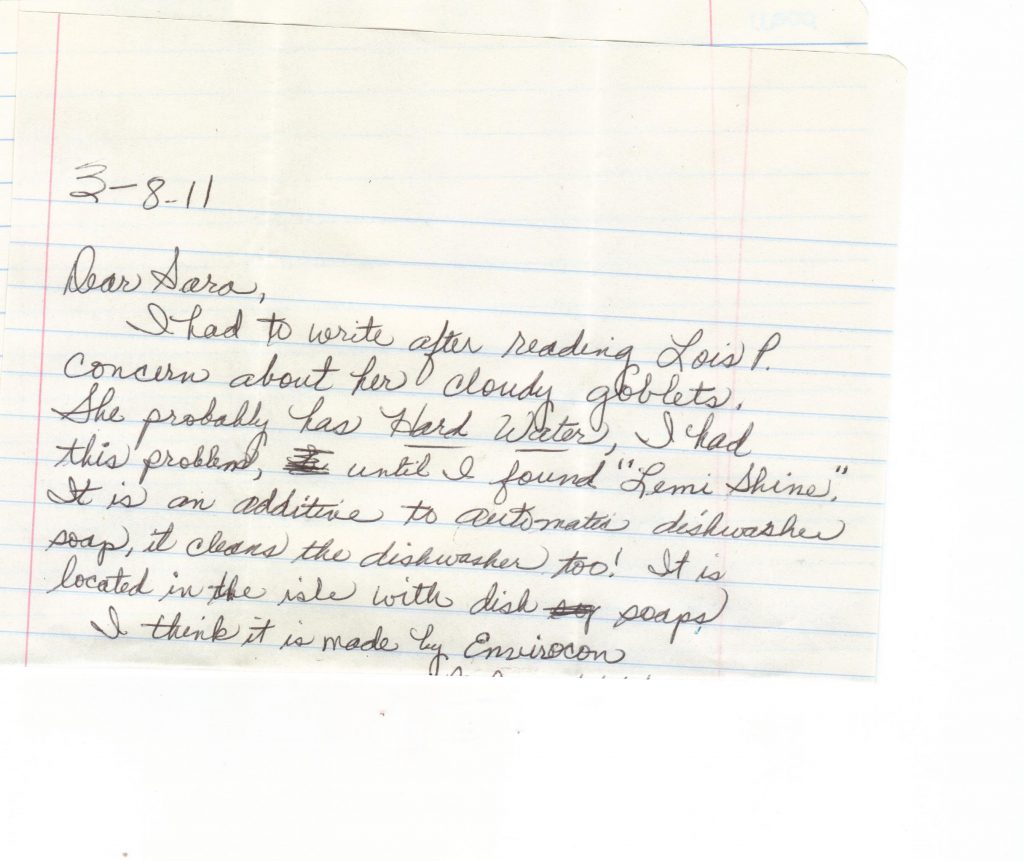 3-8-11
Dear Sara,
I had to write after reading Lois P.
concern about her cloudy goblets.
She probably has Hard Water, I had
this problem, until I found "Lemi Shine".
It is an additive to automatic dishwasher
soap, it cleans the dishwasher too! It is
located in the isle with dish soaps
I think it is made by Envirocon